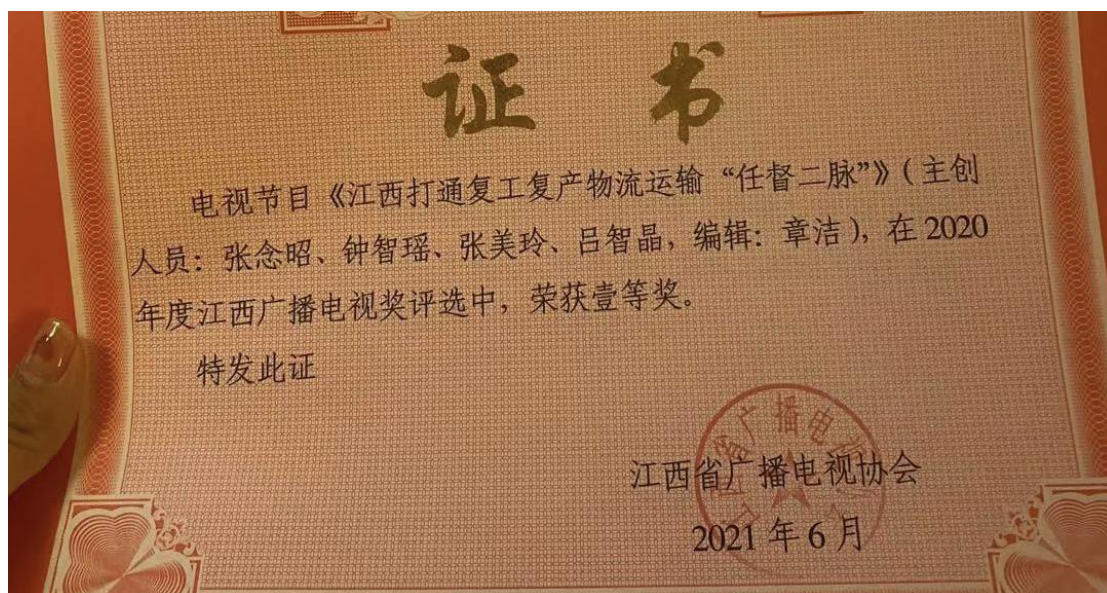 证 书
电视节目《江西打通复工复产物流运输“任督二脉”》（主创
人员：张念昭、钟智瑶、张美玲、吕智晶，编辑：章洁），在 2020
年度江西广播电视奖评选中，荣获壹等奖。
特发此证
江西省广播电视协会
2021 年 6 月